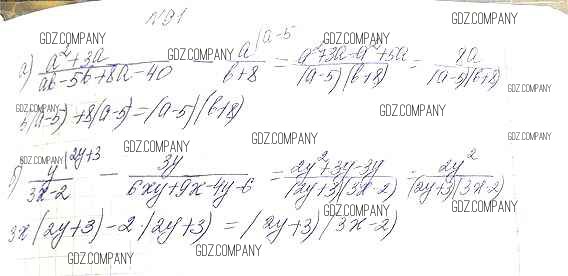 N 91
GDZ.COMPANY
GDZ.COMPANY GDZ.COMPANY
а) (a²+3a)/(ab-5b+8a-40) - a/(b+8) |a-5 = (a²+3a-a²+5a)/((a-5)(b+8)) = 8a/((a-5)(b+8))
GDZ.COMPANY GDZ.COMPANY
GDZ.COMPANY GDZ.COMPANY
b(a-5)+8(a-5)=(a-5)(b+8)
GDZ.COMPANY GDZ.COMPANY
GDZ.COMPANY GDZ.COMPANY
GDZ.COMPANY GDZ.COMPANY
б) y/(3x-2) |2y+3 - 3y/(6xy+9x-4y-6) = (2y²+3y-3y)/((2y+3)(3x-2)) = 2y²/((2y+3)(3x-2))
GDZ.COMPANY GDZ.COMPANY
GDZ.COMPANY GDZ.COMPANY
3x(2y+3)-2·(2y+3)=(2y+3)(3x-2)
GDZ.COMPANY GDZ.COMPANY